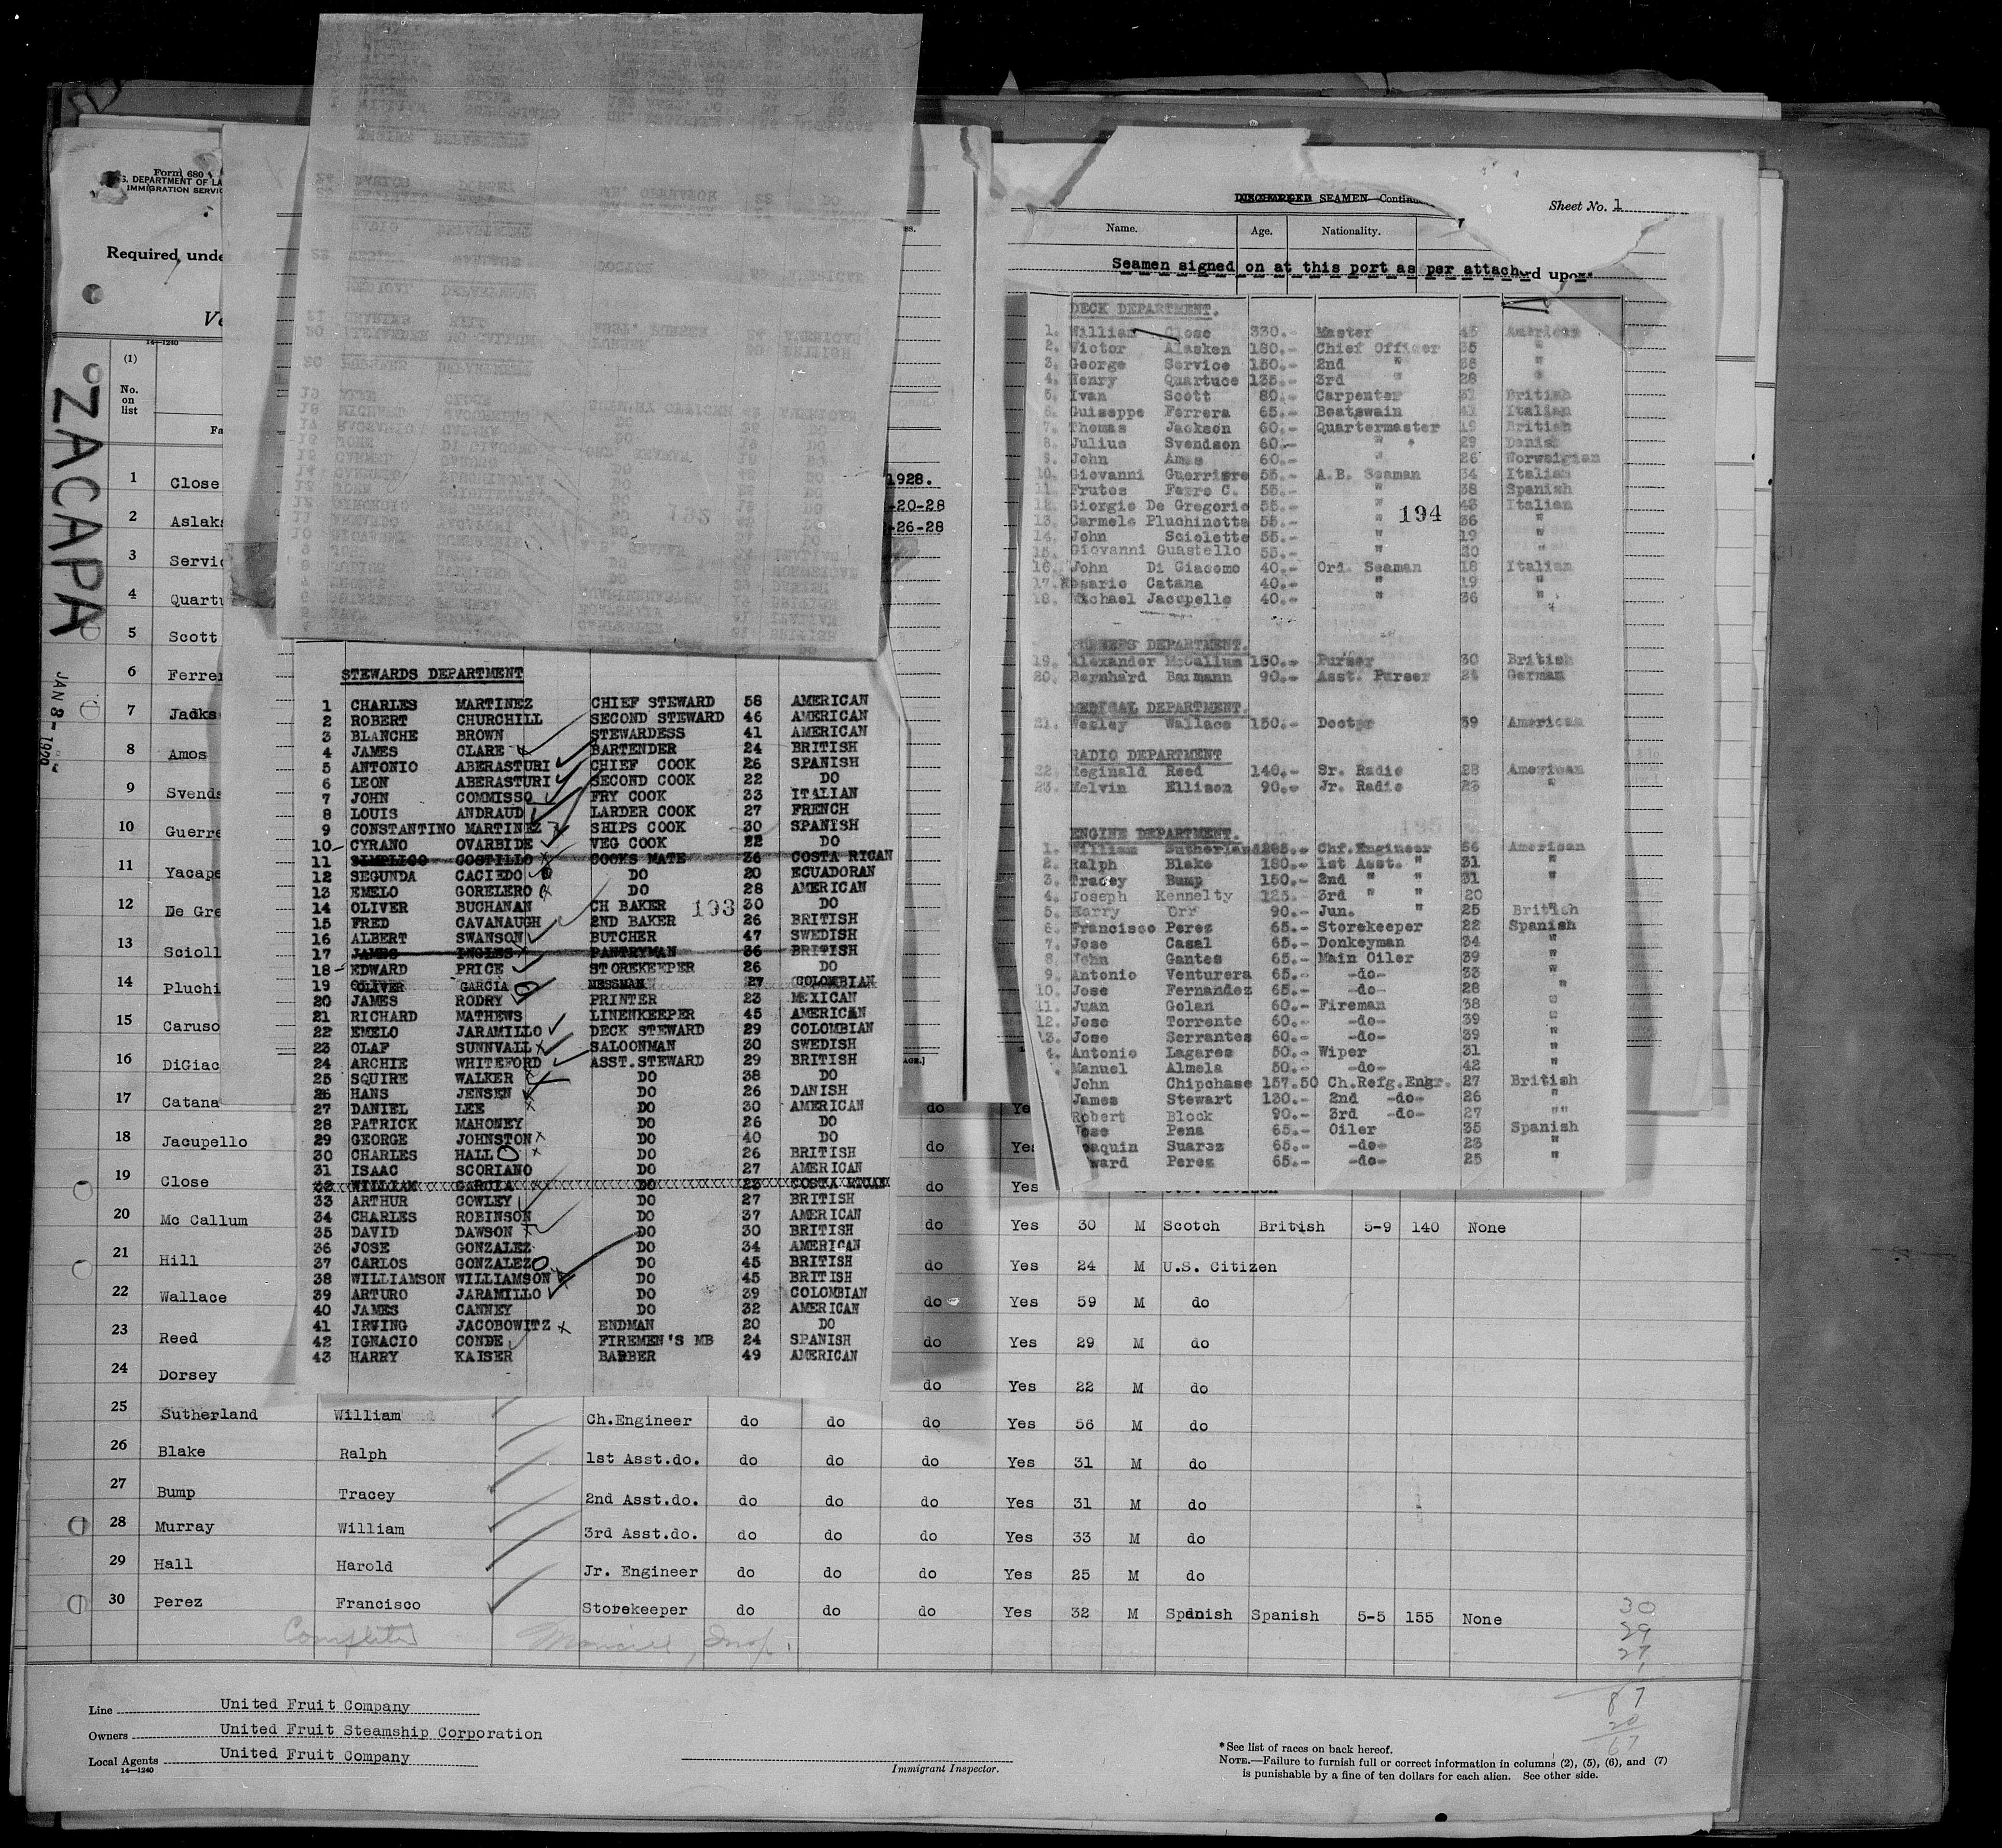 Form 680
S. DEPARTMENT OF LA
IMMIGRATION SERVIC
Required unde
Ve
14—1240
(1)
No.
on
list
Fa
ZACAPA
JAN 8 - 1929
1 Close
2 Aslaks
3 Servic
4 Quartu
5 Scott
6 Ferrer
7 Jadks
8 Amos
9 Svends
10 Guerre
11 Yacape
12 De Gre
13 Scioll
14 Pluchi
15 Caruso
16 DiGiac
17 Catana
18 Jacupello
19 Close
20 Mc Callum
21 Hill
22 Wallace
23 Reed
24 Dorsey
1928.
-20-28
-26-28
192
STEWARDS DEPARTMENT
1 CHARLES MARTINEZ CHIEF STEWARD 58 AMERICAN
2 ROBERT CHURCHILL SECOND STEWARD 46 AMERICAN
3 BLANCHE BROWN STEWARDESS 41 AMERICAN
4 JAMES CLARE BARTENDER 24 BRITISH
5 ANTONIO ABERASTURI CHIEF COOK 26 SPANISH
6 LEON ABERASTURI SECOND COOK 22 DO
7 JOHN COMMISSO FRY COOK 33 ITALIAN
8 LOUIS ANDRAUD LARDER COOK 27 FRENCH
9 CONSTANTINO MARTINEZ SHIPS COOK 30 SPANISH
10 CYRANO OVARBIDE VEG COOK 22 DO
11 SIMPLICO COSTILLO COOKS MATE 36 COSTA RICAN
12 SEGUNDA CACIEDO DO 20 ECUADORAN
13 EMELO GORELERO DO 28 AMERICAN
14 OLIVER BUCHANAN CH BAKER 30 DO
193
15 FRED CAVANAUGH 2ND BAKER 26 BRITISH
16 ALBERT SWANSON BUTCHER 47 SWEDISH
17 JAMES INGLES PANTRYMAN 36 BRITISH
18 EDWARD PRICE STOREKEEPER 26 DO
19 OLIVER GARCIA MESSMAN 27 COLOMBIAN
20 JAMES RODRY PRINTER 23 MEXICAN
21 RICHARD MATHEWS LINENKEEPER 45 AMERICAN
22 EMELO JARAMILLO DECK STEWARD 29 COLOMBIAN
23 OLAF SUNNVALL SALOONMAN 30 SWEDISH
24 ARCHIE WHITEFORD ASST.STEWARD 29 BRITISH
25 SQUIRE WALKER DO 38 DO
26 HANS JENSEN DO 26 DANISH
27 DANIEL LEE DO 30 AMERICAN
28 PATRICK MAHONEY DO 26 DO
29 GEORGE JOHNSTON DO 40 DO
30 CHARLES HALL DO 26 BRITISH
31 ISAAC SCORIANO DO 27 AMERICAN
32 WILLIAM GARCIA DO 23 COSTA RICAN
33 ARTHUR COWLEY DO 27 BRITISH
34 CHARLES ROBINSON DO 37 AMERICAN
35 DAVID DAWSON DO 30 BRITISH
36 JOSE GONZALEZ DO 34 AMERICAN
37 CARLOS GONZALEZ DO 45 BRITISH
38 WILLIAMSON WILLIAMSON DO 45 BRITISH
39 ARTURO JARAMILLO DO 39 COLOMBIAN
40 JAMES CANNEY DO 32 AMERICAN
41 IRVING JACOBOWITZ ENDMAN 20 DO
42 IGNACIO CONDE FIREMEN'S MB 24 SPANISH
43 HARRY KAISER BARBER 49 AMERICAN
DISCHARGED SEAMEN—Continu
Sheet No. 1
Name. Age. Nationality.
Seamen signed on at this port as per attached upon
DECK DEPARTMENT.
1. William Close 330.- Master 45 American
2. Victor Alasken 180.- Chief Officer 35 "
3. George Service 150.- 2nd " 35 "
4. Henry Quartuce 135.- 3rd " 28 "
5. Ivan Scott 80.- Carpenter 31 British
6. Guiseppe Ferrera 65.- Boatswain 41 Italian
7. Thomas Jackson 60.- Quartermaster 19 British
8. Julius Svendson 60.- " 29 Danish
9. John Amos 60.- " 26 Norweigian
10. Giovanni Guerriere 55.- A.B. Seaman 34 Italian
11. Frutos Faero C. 55.- " 38 Spanish
12. Giorgio De Gregorio 55.- " 43 Italian
194
13. Carmelo Pluchinotta 55.- " 36 "
14. John Sciolette 55.- " 19 "
15. Giovanni Guastello 55.- " 30 "
16. John Di Giacomo 40.- Ord. Seaman 18 Italian
17. Rosario Catana 40.- " 19 "
18. Michael Jacupello 40.- " 36 "
PURSERS DEPARTMENT.
19. Alexander McCallum 150.- Purser 30 British
20. Bernhard Baumann 90.- Asst. Purser 24 German
MEDICAL DEPARTMENT.
21. Wesley Wallace 150.- Doctor 59 American
RADIO DEPARTMENT
22. Reginald Reed 140.- Sr. Radio 28 American
23. Melvin Ellison 90.- Jr. Radio 23 "
195
ENGINE DEPARTMENT.
1. William Sutherland 285.- Chf.Engineer 56 American
2. Ralph Blake 180.- 1st Asst. " 31 "
3. Tracey Bump 150.- 2nd " " 31 "
4. Joseph Kennelty 125.- 3rd " " 20
5. Harry Orr 90.- Jun. " 25 British
6. Francisco Perez 65.- Storekeeper 22 Spanish
7. Jose Casal 65.- Donkeyman 34 "
8. John Gantes 65.- Main Oiler 39 "
9. Antonio Venturera 65.- -do- 33 "
10. Jose Fernandez 65.- -do- 28 "
11. Juan Golan 60.- Fireman 38 "
12. Jose Torrente 60.- -do- 39 "
13. Jose Serrantes 60.- -do- 39 "
4. Antonio Lagares 50.- Wiper 31 "
Manuel Almela 50.- -do- 42 "
John Chipchase 157.50 Ch.Refg.Engr. 27 British
James Stewart 130.- 2nd -do- 26 "
Robert Block 90.- 3rd -do- 27 ""
Jose Pena 65.- Oiler 35 Spanish
oaquin Suarez 65.- -do- 23 "
ward Perez 65.- -do- 25 "
do Yes
do Yes
do Yes
do Yes 30 M Scotch British 5-9 140 None
do Yes 24 M U.S. Citizen
do Yes 59 M do
do Yes 29 M do
do Yes 22 M do
25 Sutherland William Ch.Engineer do do do Yes 56 M do
26 Blake Ralph 1st Asst.do. do do do Yes 31 M do
27 Bump Tracey 2nd Asst.do. do do do Yes 31 M do
28 Murray William 3rd Asst.do. do do do Yes 33 M do
29 Hall Harold Jr. Engineer do do do Yes 25 M do
30 Perez Francisco Storekeeper do do do Yes 32 M Spanish Spanish 5-5 155 None
30
29
27
1
87
20
67
Line United Fruit Company
Owners United Fruit Steamship Corporation
Local Agents United Fruit Company
14—1240
Immigrant Inspector.
*See list of races on back hereof.
NOTE.—Failure to furnish full or correct information in columns (2), (5), (6), and (7)
is punishable by a fine of ten dollars for each alien. See other side.